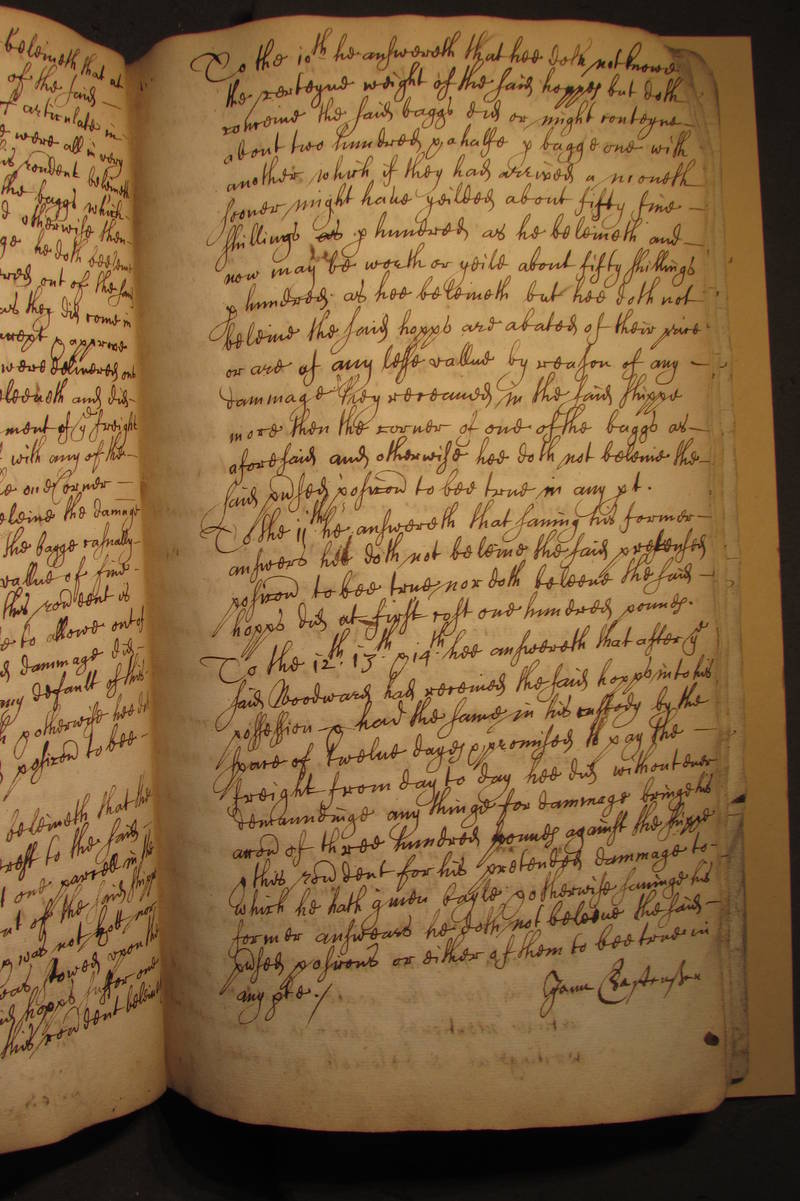 beleiveth that at
of the said —
of articulate in
were all in very
his rendent beleiveth
the baggs which
otherwise then
he doth beeleive
out of the said
as they did come in
except & approve
were delivered out
beleeveth and did
ment of ye freight
with any of the
one Corner —
beleive the damage
the bagge casually
vallue of five
this rendent is
to allowe out of
dammage did
any default of this
& otherwise hee doth
posicon to bee
beleiveth that the
rest to the said
one parcell in the
of the said shipp
was not hott nor
was stowed upon the
hopps suffer one
this rendent beleiveth
To the 10th he answereth that hee doth not knowe
the certeyne weight of the said hopps but doth
conceive the said baggs did or might conteyne —
about two hundred & a halfe p bagge one with
another which if they had arrived a moneth
sooner might have yeilded about fifty five —
shillings as p hundred as he beleiveth and —
now may be worth or yeild about fifty shillings
p hundred as hee beleiveth but hee doth not
beleive the said hopps are abated of their price
or are of any lesse vallue by reason of any —
dammage they receaved in the said shippe
more then the corner of one of the baggs as —
aforesaid and otherwise hee doth not beleive the —
said ptsed posicon to bee true in any pt.
To the 11th he answereth that saving his former —
answers hee doth not beleive the said pretensed
posicon to bee true nor doth beleeve the said —
hopps did at first cost one hundred pounds.
To the 12th. 13th & 14th hee answereth that after ye
said Woodward had received the said hopps into his
possession & had the same in his custody by the
space of twelve dayes & promised to pay the —
freight from day to day hee did without ever
demaundeinge any thinge for dammage bringe his
accon of three hundred pounds against the shippe
& this rendent for his pretended dammage to —
which he hath given bayle & otherwise saveinge his
former answears he doth not beleeve the said —
ptsed posicons or either of them to bee true in
any pte./